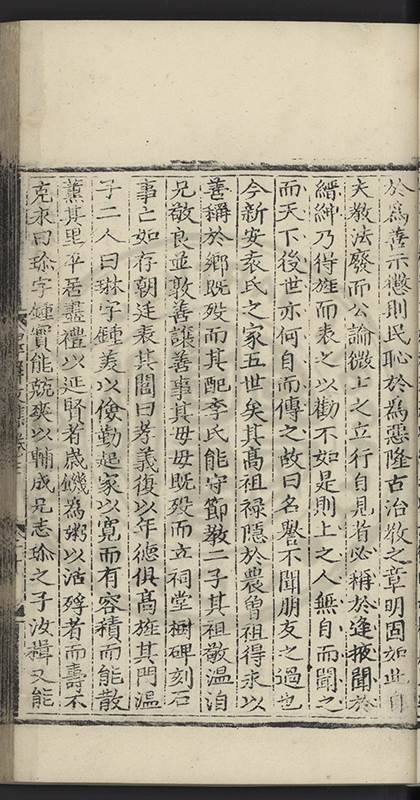 於爲善示懲則民恥於爲惡隆古治教之章明固如此自
夫教法廢而公論微上之立行自見者必稱於逢掖聞於
縉紳乃得旌而表之以勸不如是則上之人無自而聞之
而天下後世亦何自而傳之故曰名譽不聞朋友之過也
今新安袁氏之家五世矣其高祖祿隱於農曾祖得永以
善稱於鄉既歿而其配李氏能守節教二子其祖敬溫洎
兄敬良並敦善讓善事其母母既歿而立祠堂樹碑刻石
事亡如存朝廷表其閭曰孝義復以年德俱高旌其門溫
子二人曰琳字鍾美以儉勤起家以寬而有容積而能散
薰其里平居盡禮以延賢者歲饑爲粥以活殍者而壽不
克永曰珎字鍾實能競爽以輔成兄志珎之子汝楫又能